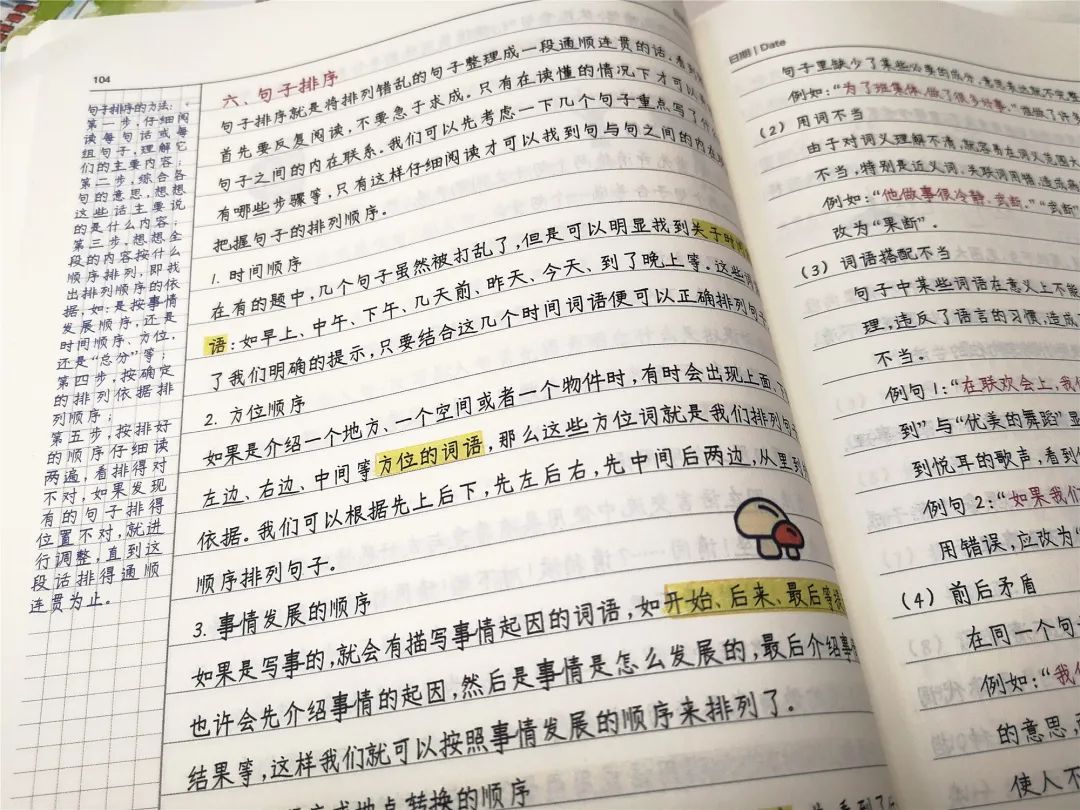 104
句子排序的方法:
第一步,仔细阅
读每句话或每
组句子,理解它
们的主要内容;
第二步,综合各
句的意思,想想
这些话主要说
的是什么内容;
第三步,想想全
段的内容按什么
顺序排列,即找
出排列顺序的依
据,如:是按事情
发展顺序,还是
时间顺序、方位,
还是“总分”等;
第四步,按确定
的排列依据排
列顺序;
第五步,按排好
的顺序仔细读
两遍,看排得对
不对,如果发现
有的句子排得
位置不对,就进
行调整,直到这
段话排得通顺
连贯为止。
六、句子排序
句子排序就是将排列错乱的句子整理成一段通顺连贯的话。看到
首先要反复阅读,不要急于求成。只有在读懂的情况下才可以
句子之间的内在联系。我们可以先考虑一下几个句子重点写了什
有哪些步骤等,只有这样仔细阅读才可以找到句与句之间的内在
把握句子的排列顺序。
1. 时间顺序
在有的题中,几个句子虽然被打乱了,但是可以明显找到关于时间
语:如早上、中午、下午、几天前、昨天、今天、到了晚上等。这些词
了我们明确的提示,只要结合这几个时间词语便可以正确排列句子
2. 方位顺序
如果是介绍一个地方、一个空间或者一个物件时,有时会出现上面、下
左边、右边、中间等方位的词语,那么这些方位词就是我们排列句子
依据。我们可以根据先上后下,先左后右,先中间后两边,从里到
顺序排列句子。
3. 事情发展的顺序
如果是写事的,就会有描写事情起因的词语,如开始、后来、最后等
也许会先介绍事情的起因,然后是事情是怎么发展的,最后介绍事
结果等,这样我们就可以按照事情发展的顺序来排列了。
地点转换的顺序
日期 | Date
句子里缺少了某些必要的成分,意思表达就不完整
例如:“为了班集体,做了很多好事。”谁做了许多
(2) 用词不当
由于对词义理解不清,就容易在词义范围大
不当,特别是近义词、关联词用错,造成病
例如:“他做事很冷静、武断。”“武断”
改为“果断”。
(3) 词语搭配不当
句子中某些词语在意义上不能
理,违反了语言的习惯,造成
不当。
例句1:“在联欢会上,我们
到”与“优美的舞蹈”显
到悦耳的歌声,看到
例句2:“如果我们
用错误,应改为“
(4) 前后矛盾
在同一个句子
例如:“我们
的意思,
使人不